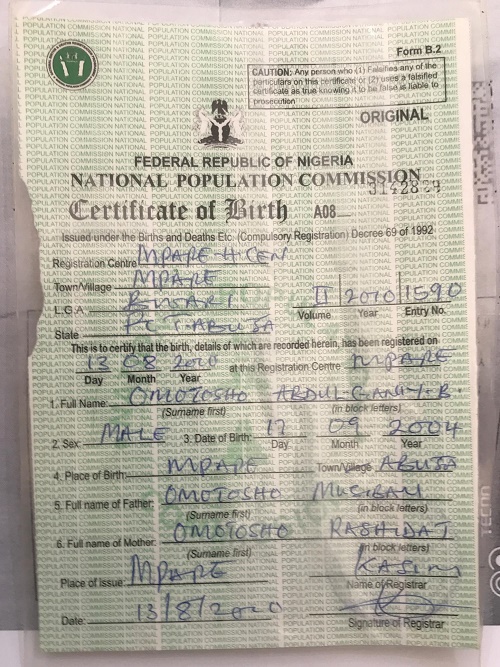 Form B.2
CAUTION: Any person who (1) Falsifies any of the
particulars on this certificate or (2) uses a falsified
certificate as true knowing it to be false is liable to
prosecution
ORIGINAL
FEDERAL REPUBLIC OF NIGERIA
NATIONAL POPULATION COMMISSION
Certificate of Birth A08
Issued under the Births and Deaths Etc. (Compulsory Registration) Decree 69 of 1992
Registration Centre MPAPE H CEN
Town/Village MPAPE
L.G.A. BWARI II 2020 1590
Volume Year Entry No.
State FCT ABUJA
This is to certify that the birth, details of which are recorded herein, has been registered on
13 08 2020 at this Registration Centre MPAPE
Day Month Year
1. Full Name: OMOTOSHO ABDUL-GANIY. B.
(Surname first) (in block letters)
2. Sex: MALE 3. Date of Birth: 17 09 2004
Day Month Year
4. Place of Birth: MPAPE Town/Village ABUJA
5. Full name of Father: OMOTOSHO
(Surname first) (in block letters)
6. Full name of Mother: OMOTOSHO RASHIDAT
(Surname first) (in block letters)
Place of Issue: MPAPE KASIM
Name of Registrar
Date: 13/8/2020
Signature of Registrar
TECNO